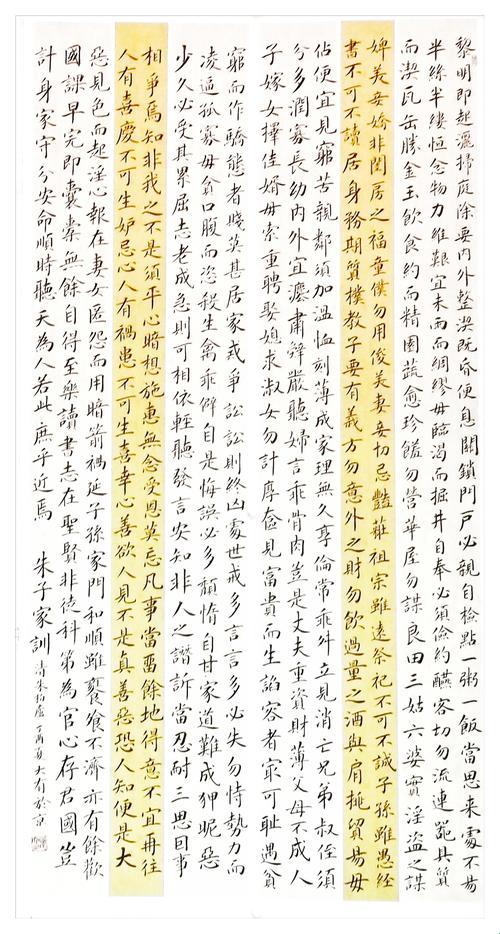 黎明即起灑掃庭除要內外整潔既昏便息關鎖門戶必親自檢點一粥一飯當思來處不易
半絲半縷恒念物力維艱宜未雨而綢繆毋臨渴而掘井自奉必須儉約讌客切勿流連器具質
而潔瓦缶勝金玉飲食約而精園蔬愈珍饈勿營華屋勿謀良田三姑六婆實淫盜之謀
婢美妾嬌非閨房之福童僕勿用俊美妻妾切忌豔莊祖宗雖遠祭祀不可不誠子孫雖愚經
書不可不讀居身務期質樸教子要有義方勿意外之財勿飲過量之酒與肩挑貿易毋
佔便宜見窮苦親鄰須加溫恤刻薄成家理無久享倫常乖舛立見消亡兄弟叔侄須
分多潤寡長幼內外宜灋肅辭嚴聽婦言乖骨肉豈是丈夫重資財薄父母不成人
子嫁女擇佳婿毋索重聘娶媳求淑女勿計厚奩見富貴而生諂容者最可恥遇貧
窮而作驕態者賤莫甚居家戒爭訟訟則終凶處世戒多言言多必失勿恃勢力而
凌逼孤寡毋貪口腹而恣殺生禽乖僻自是悔誤必多頹惰自甘家道難成狎昵惡
少久必受其累屈志老成急則可相依輕聽發言安知非人之譖訴當忍耐三思因事
相爭焉知非我之不是須平心暗想施惠無念受恩莫忘凡事當留餘地得意不宜再往
人有喜慶不可生妒忌心人有禍患不可生喜幸心善欲人見不是真善惡恐人知便是大
惡見色而起淫心報在妻女匿怨而用暗箭禍延子孫家門和順雖饔飧不濟亦有餘歡
國課早完即囊橐無餘自得至樂讀書志在聖賢非徒科第為官心存君國豈
計身家守分安命順時聽天為人若此庶乎近焉 朱子家訓 清朱柏廬 大有於京